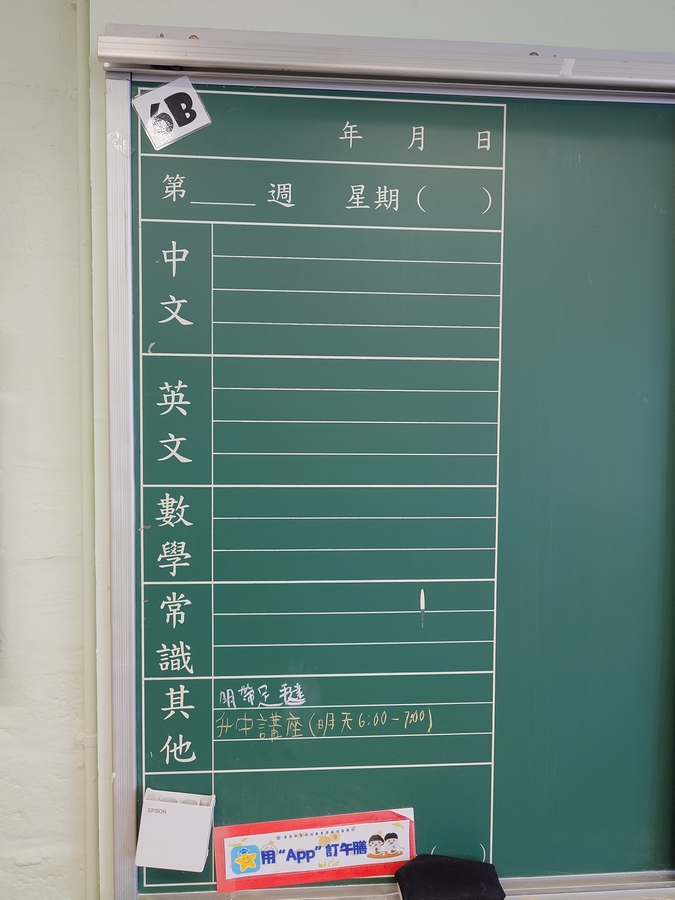 6B
年 月 日
第____週 星期( )
中文
英文
數學
常識
其他
明帶足毽
升中講座(明天6:00-7:00)
EPSON
用“App”訂午膳
( )